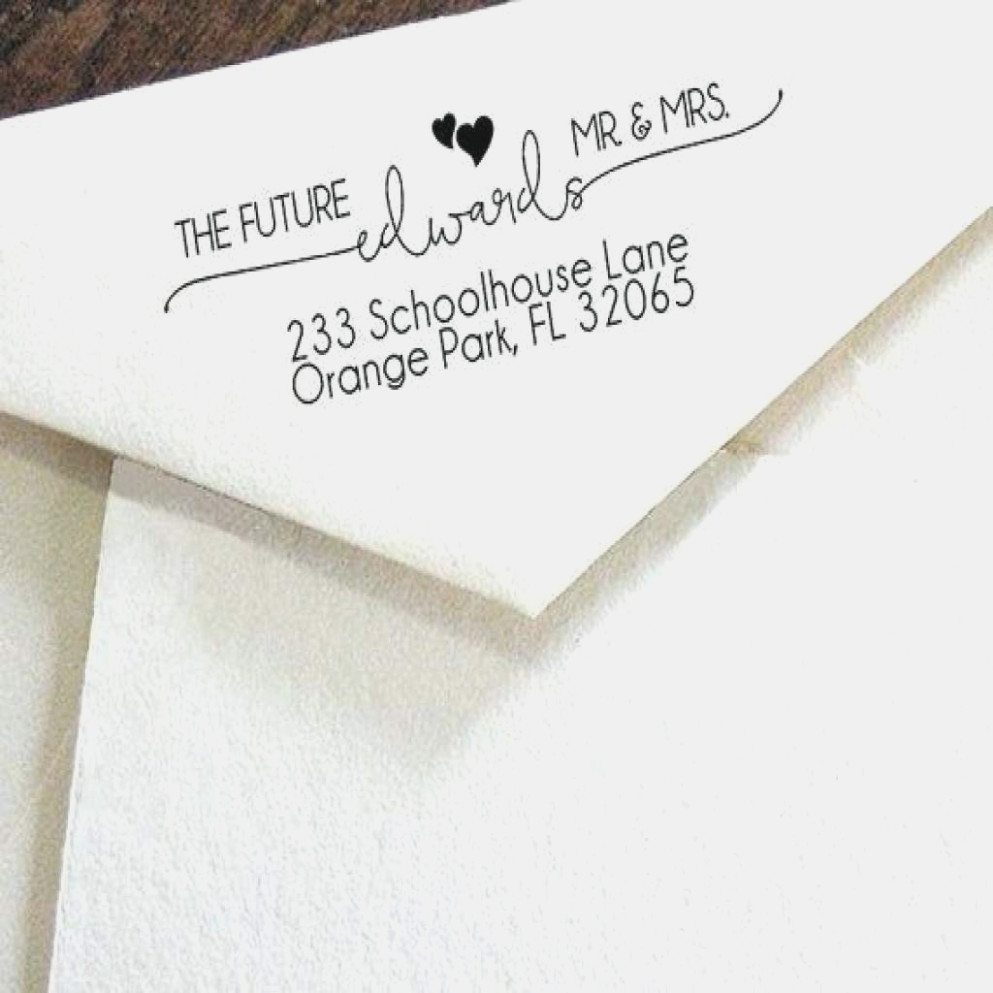 THE FUTURE edwards MR. & MRS.
233 Schoolhouse Lane
Orange Park, FL 32065